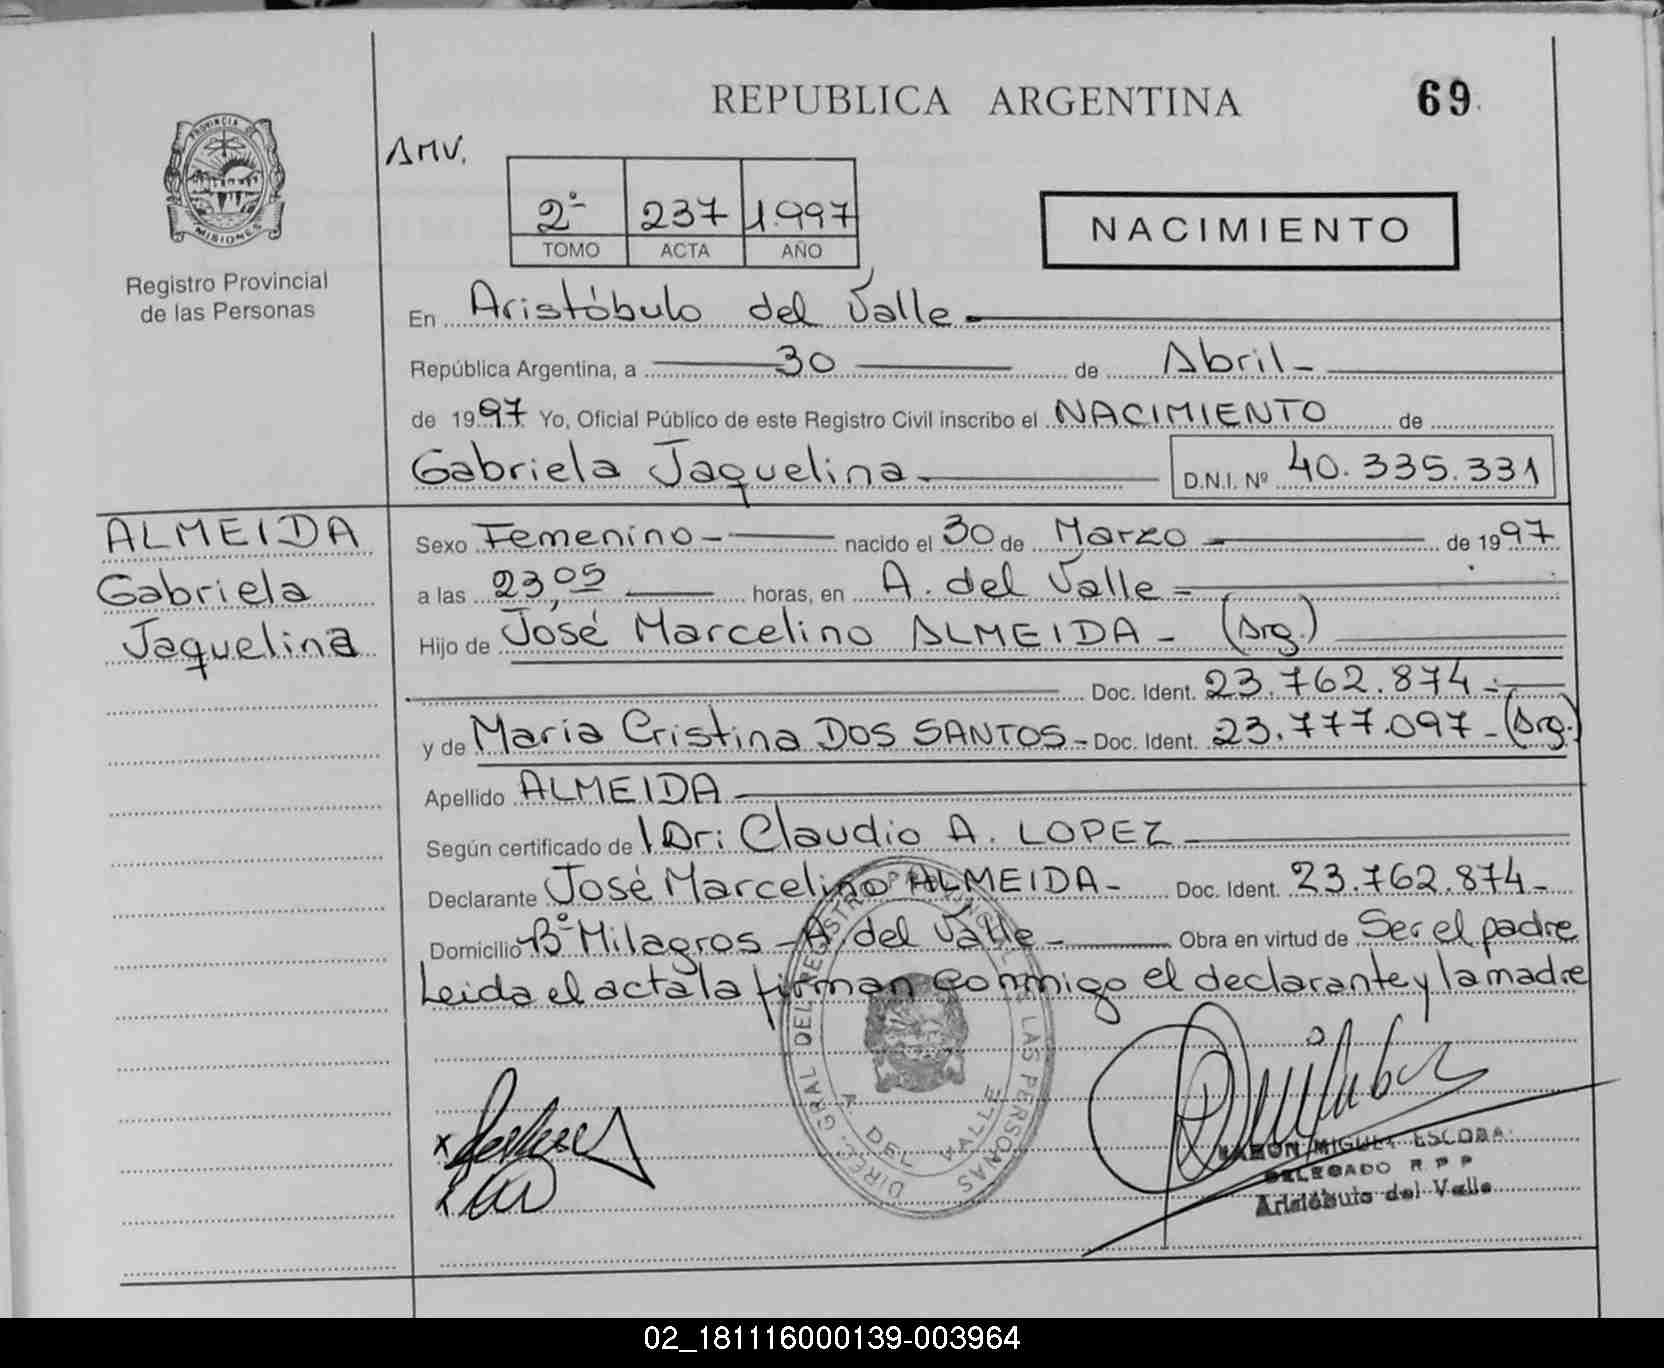 REPUBLICA ARGENTINA
69
PROVINCIA DE
MISIONES
Registro Provincial
de las Personas
AMV.
2º 237 1.997
TOMO ACTA AÑO
NACIMIENTO
En Aristóbulo del Valle
República Argentina, a 30 de Abril
de 1997 Yo, Oficial Público de este Registro Civil inscribo el NACIMIENTO de
Gabriela Jaquelina D.N.I. Nº 40.335.331
ALMEIDA
Gabriela
Jaquelina
Sexo Femenino nacido el 30 de Marzo de 1997
a las 23,05 horas, en A. del Valle
Hijo de José Marcelino ALMEIDA - (Arg.)
Doc. Ident. 23.762.874
y de María Cristina DOS SANTOS - Doc. Ident. 23.777.097 - (Arg.)
Apellido ALMEIDA
Según certificado de Dr: Claudio A. LOPEZ
Declarante José Marcelino ALMEIDA - Doc. Ident. 23.762.874 -
Domicilio Bº Milagros - A. del Valle - Obra en virtud de Ser el padre
Leida el acta la firman conmigo el declarante y la madre
DIREC. GRAL DEL REGISTRO PROVINCIAL DE LAS PERSONAS
A DEL VALLE
RAMON MIGUEL ESCOBA
DELEGADO R P P
Aristóbulo del Valle
02_181116000139-003964